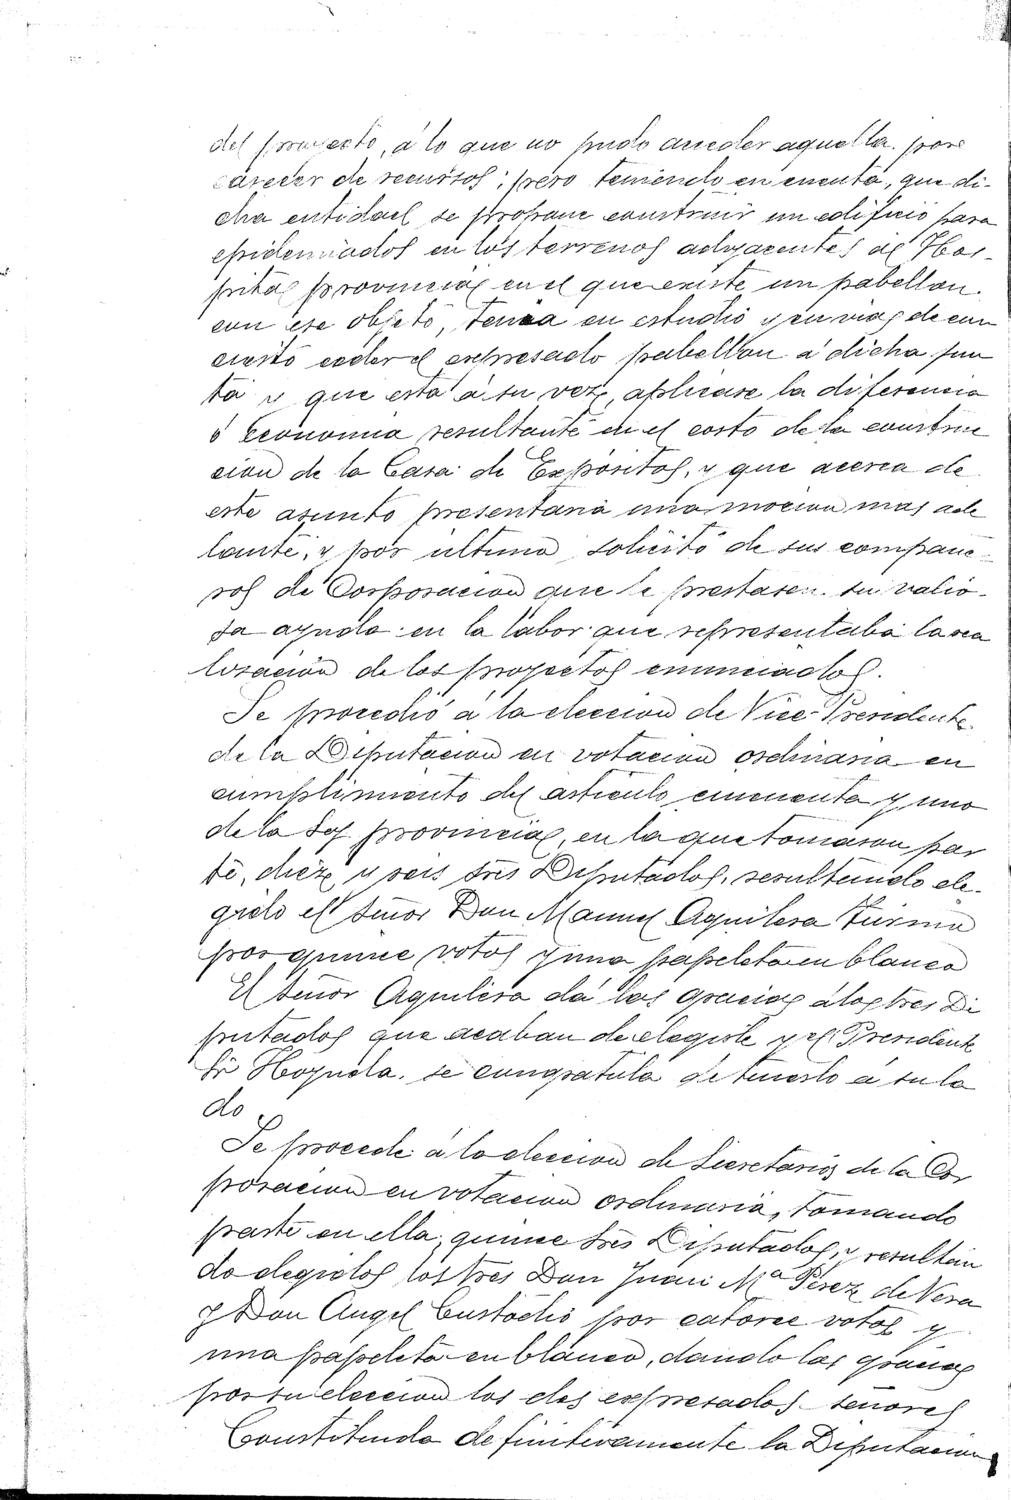 del proyecto, á lo que no pudo acceder aquella por
carecer de recursos; pero teniendo en cuenta, que di-
cha entidad se propone construir un edificio para
epidemiados en los terrenos adyacentes al Hos-
pital provincial en el que existe un pabellon
con ese objeto, tenia en estudio y en vias de con
cierto ceder el expresado pabellon á dicha jun
ta y que esta á su vez, aplicase la diferencia
ó economia resultante en el costo de la construc
cion de la Casa de Expósitos, y que acerca de
este asunto presentaria una mocion mas ade
lante, y por ultimo solicitó de sus compañe-
ros de Corporacion que le prestasen su valio-
sa ayuda en la labor que representaba la rea
lizacion de los proyectos enunciados.
Se procedió á la eleccion de Vice-Presidente
de la Diputacion en votacion ordinaria en
cumplimiento del articulo cincuenta y uno
de la Ley provincial, en la que tomaron par
te, diez y seis Sres Diputados, resultando ele-
gido el Señor Don Manuel Aguilera Turmo
por quince votos y una papeleta en blanco
El Señor Aguilera dá las gracias á los Sres Di
putados que acaban de elegirle y el Presidente
Sr Hoyuela se congratula de tenerlo á su la
do.
Se procede á la eleccion de Secretarios de la Cor
poracion en votacion ordinaria, tomando
parte en ella, quince Sres Diputados, y resultan
do elegidos los Sres Don Juan Mª Perez de Vera
y Don Angel Custodio por catorce votos y
una papeleta en blanco, dando las gracias
por su eleccion los dos expresados señores
Constituida definitivamente la Diputacion,